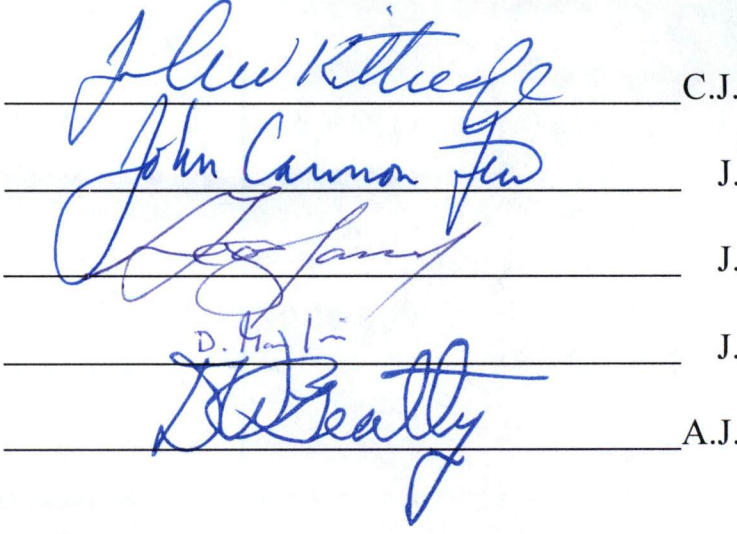 John Kittredge C.J.
John Cannon Few J.
J.
D. J.
DW Beatty A.J.